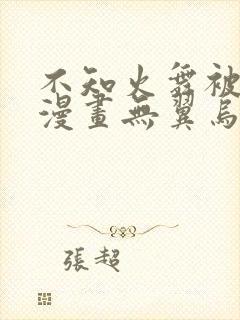 不知火舞被
漫畫無翼鳥
張超